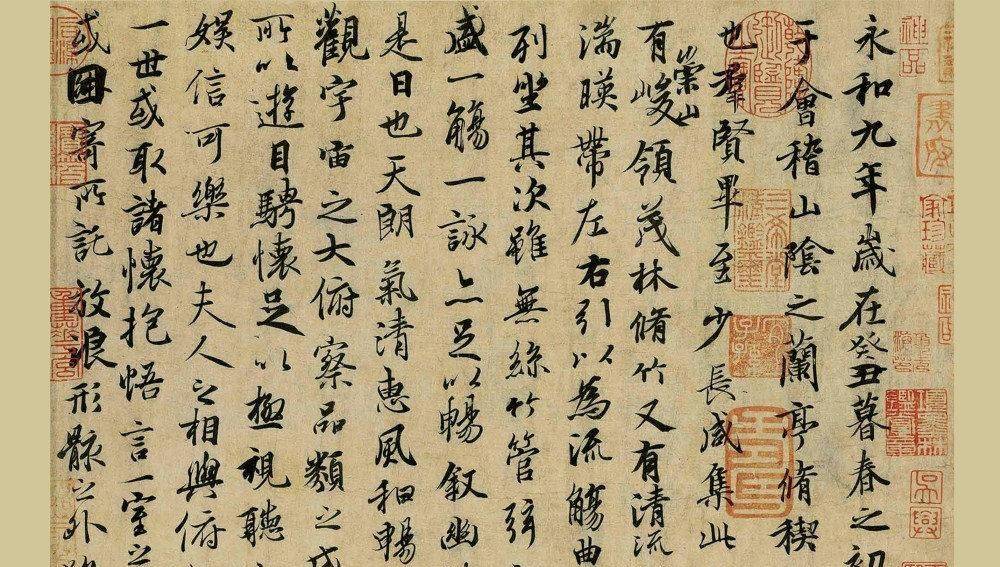 永和九年歲在癸丑暮春之初
于會稽山陰之蘭亭脩稧
也羣賢畢至少長咸集此
有崇山峻領茂林脩竹又有清流
湍暎帶左右引以為流觴曲
列坐其次雖無絲竹管弦
盛一觴一詠亦足以暢敘幽
是日也天朗氣清惠風和暢
觀宇宙之大俯察品類之盛
所以遊目騁懷足以極視聽
娛信可樂也夫人之相與俯
一世或取諸懷抱悟言一室之
或因寄所託放浪形骸之外